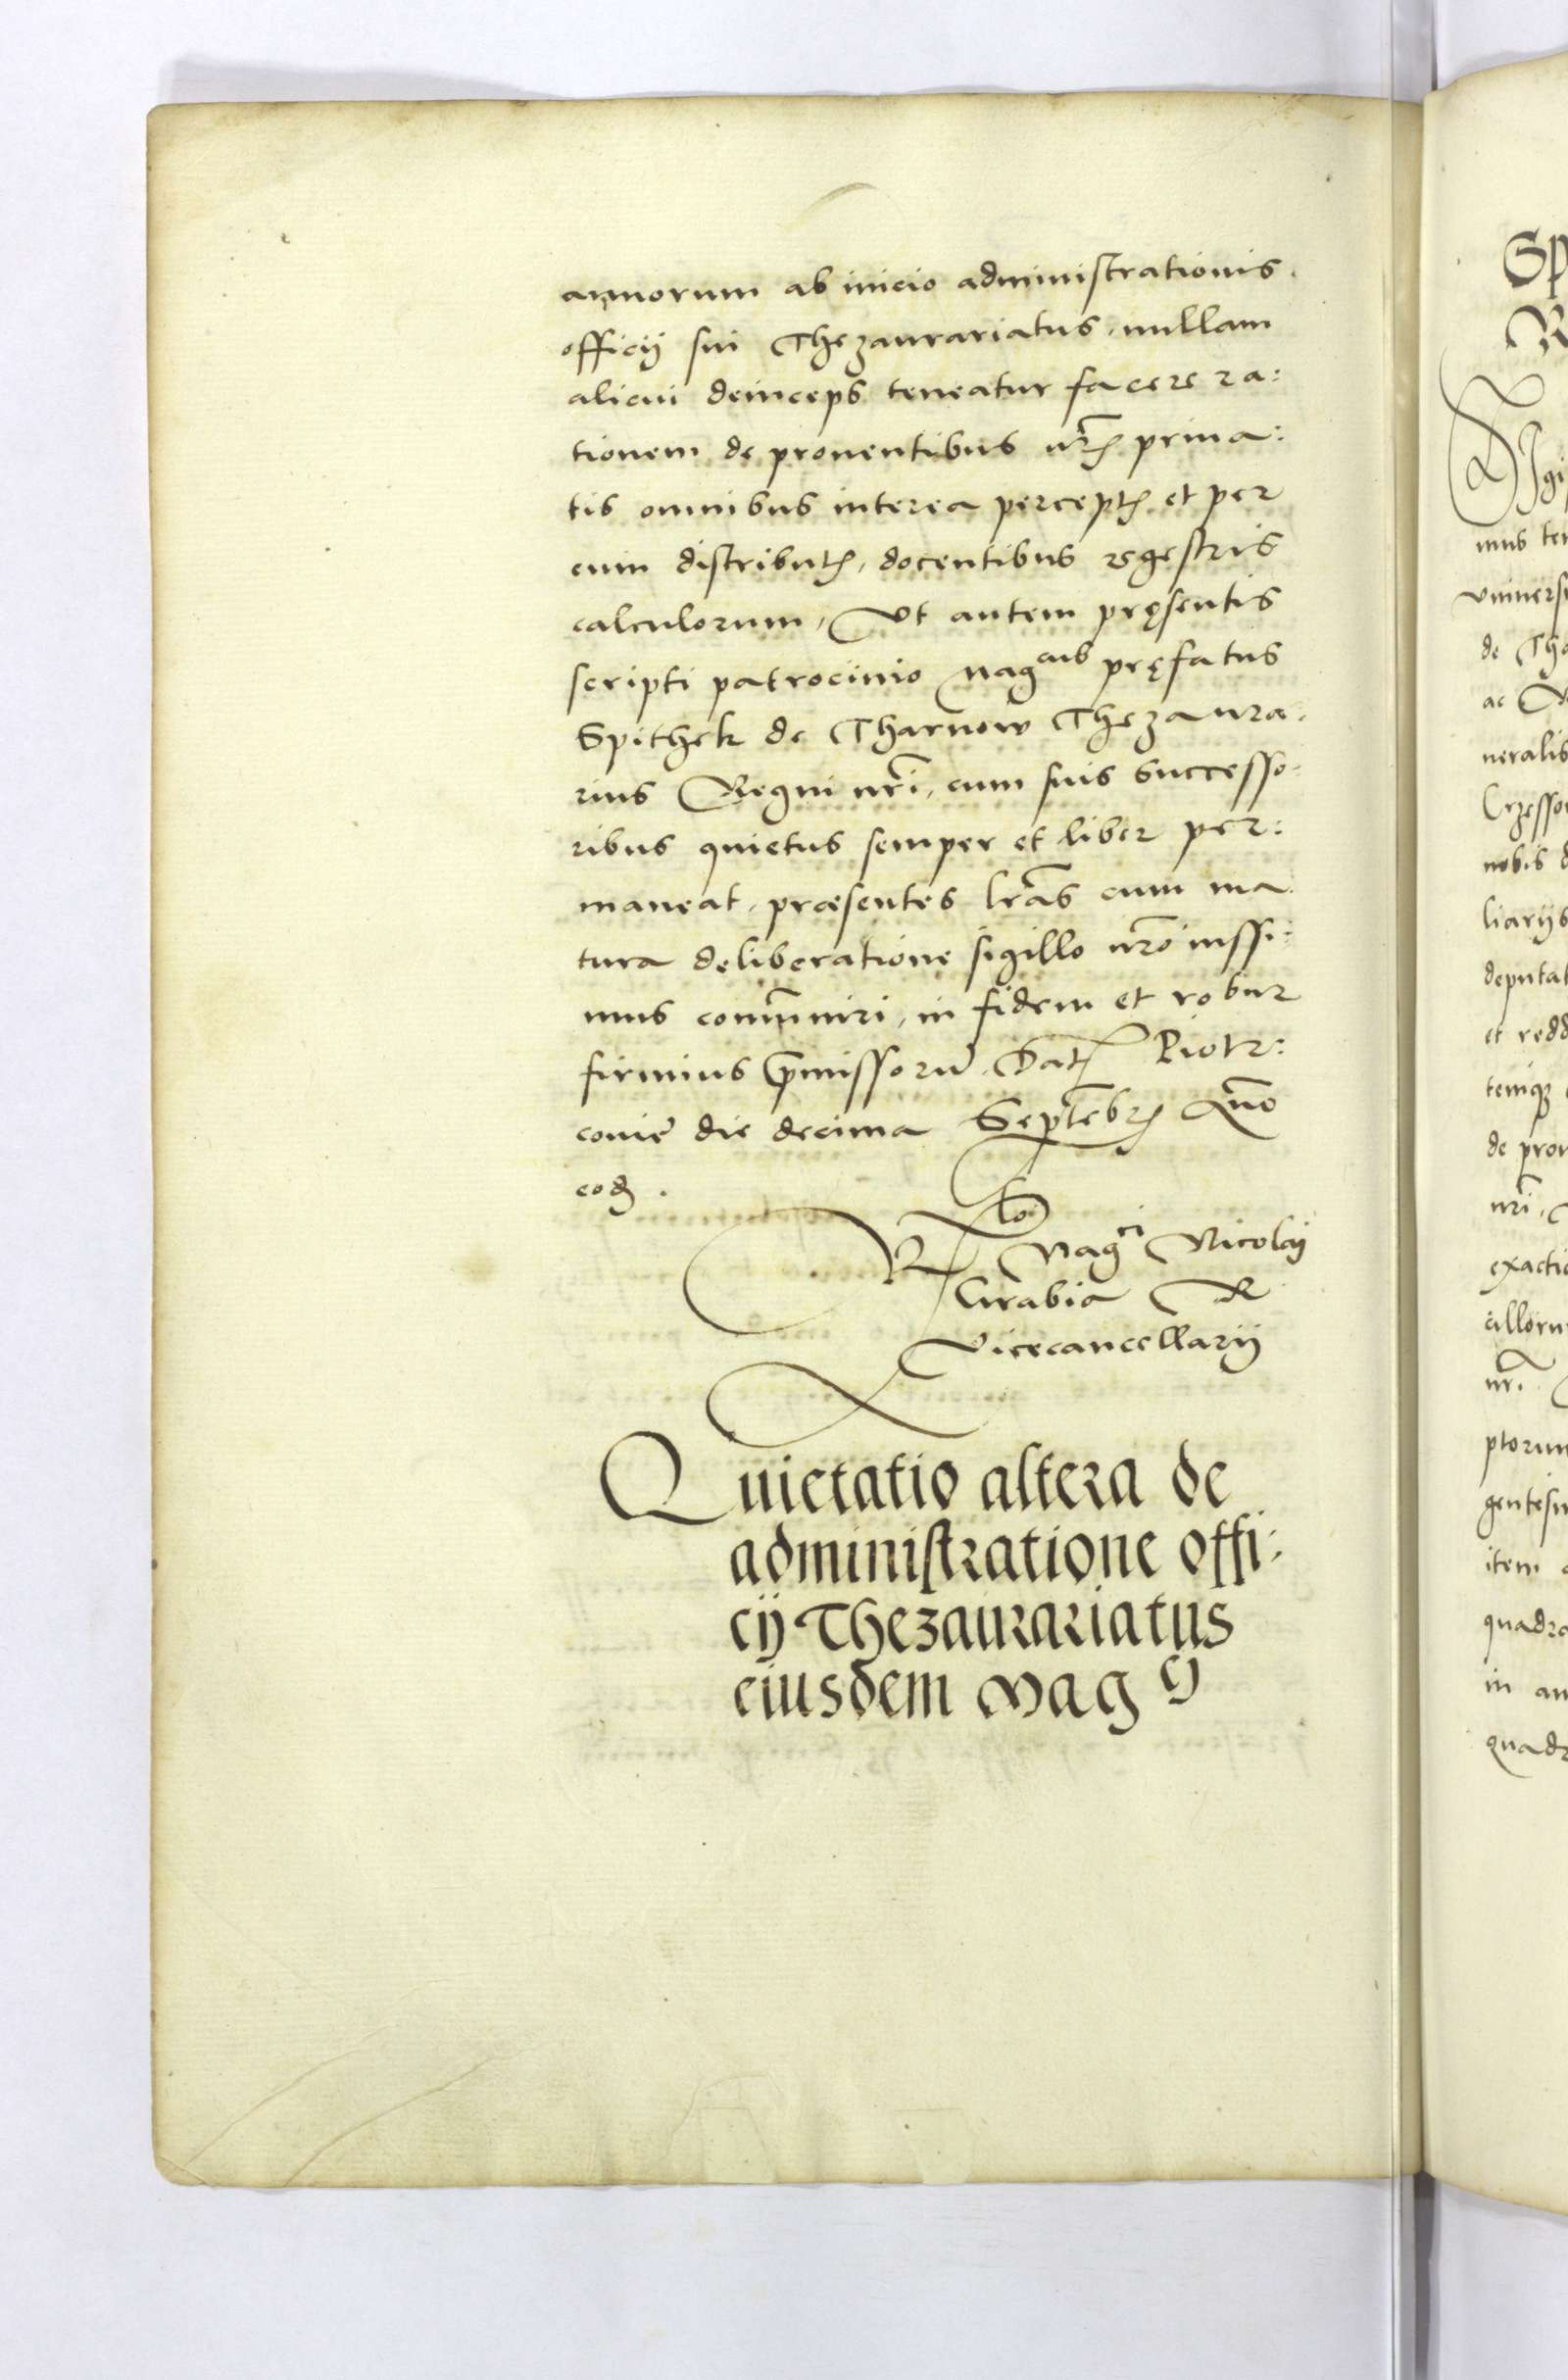 annorum ab inicio administrationis
officij sui Thezaurariatus, nullam
alicui deinceps teneatur facere ra:
tionem de proventibus nr̃is priua:
tis omnibus interea perceptis et per
eum distributis, docentibus regestris
calculorum, Vt autem pręsentis
scripti patrocinio Mag<sup>cus</sup> pręfatus
Spithek de Tharnow Thezaura:
rius Regni nr̃i, cum suis successo:
ribus quietus semper et liber per:
maneat, præsentes lr̃as cum ma
tura deliberatione sigillo nr̃o iussi:
mus com̃uniri, in fidem et robur
firmius p̃missorũ. Dat Piotr:
couiẽ die decima Septẽbris Ãno
eod̃.
Rlo Mag<sup>ci</sup> Nicolaj
Grabia R
Vicecancellarij
Quietatio altera de
administratione offi:
cij Thezaurariatus
eiusdem Mag<sup>ci</sup>
Sp
R
Sigi
mus te
vniuers
de Tha
ac
neralis
Crzesso
nobis d
liarijs
deputat
et redd
temq̃
de prou
nr̃i,
exactio
illoru
nr̃i
ptorum
gentesi
item
quadra
in an
quadr